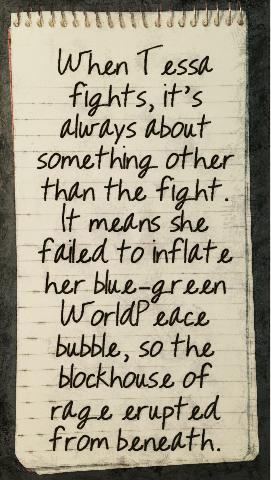 When Tessa
fights, it's
always about
something other
than the fight.
It means she
failed to inflate
her blue-green
WorldPeace
bubble, so the
blockhouse of
rage erupted
from beneath.